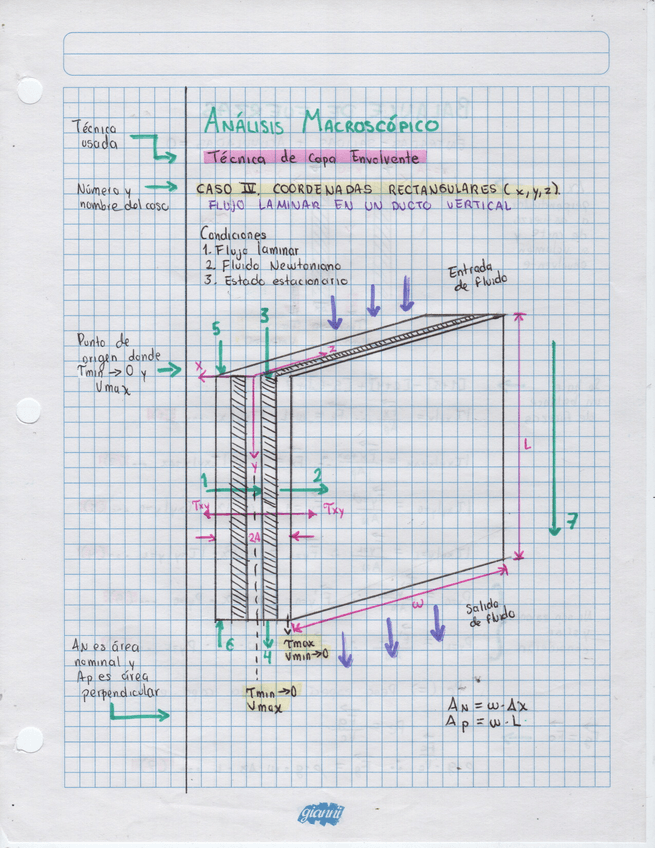 ANÁLISIS MACROSCÓPICO
Técnica
usada
Técnica de Capa Envolvente
Número y
nombre del caso
CASO IV. COORDENADAS RECTANGULARES (x,y,z).
FLUJO LAMINAR EN UN DUCTO VERTICAL
Condiciones
1. Flujo laminar
2. Fluido Newtoniano
3. Estado estacionario
Entrada
de fluido
5
3
Punto de
origen donde
τmin → 0 y
Vmax
x
z
y
L
1
2
τxy
τxy
7
2A
ω
Salida
de fluido
6
4
τmax
Vmin→0
AN es área
nominal y
Ap es área
perpendicular
τmin→0
Vmax
AN = ω·Δx
Ap = ω·L
gianni